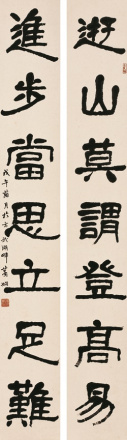 遊山莫謂登高易
進步當思立足難
戊午菊月於玄武湖畔